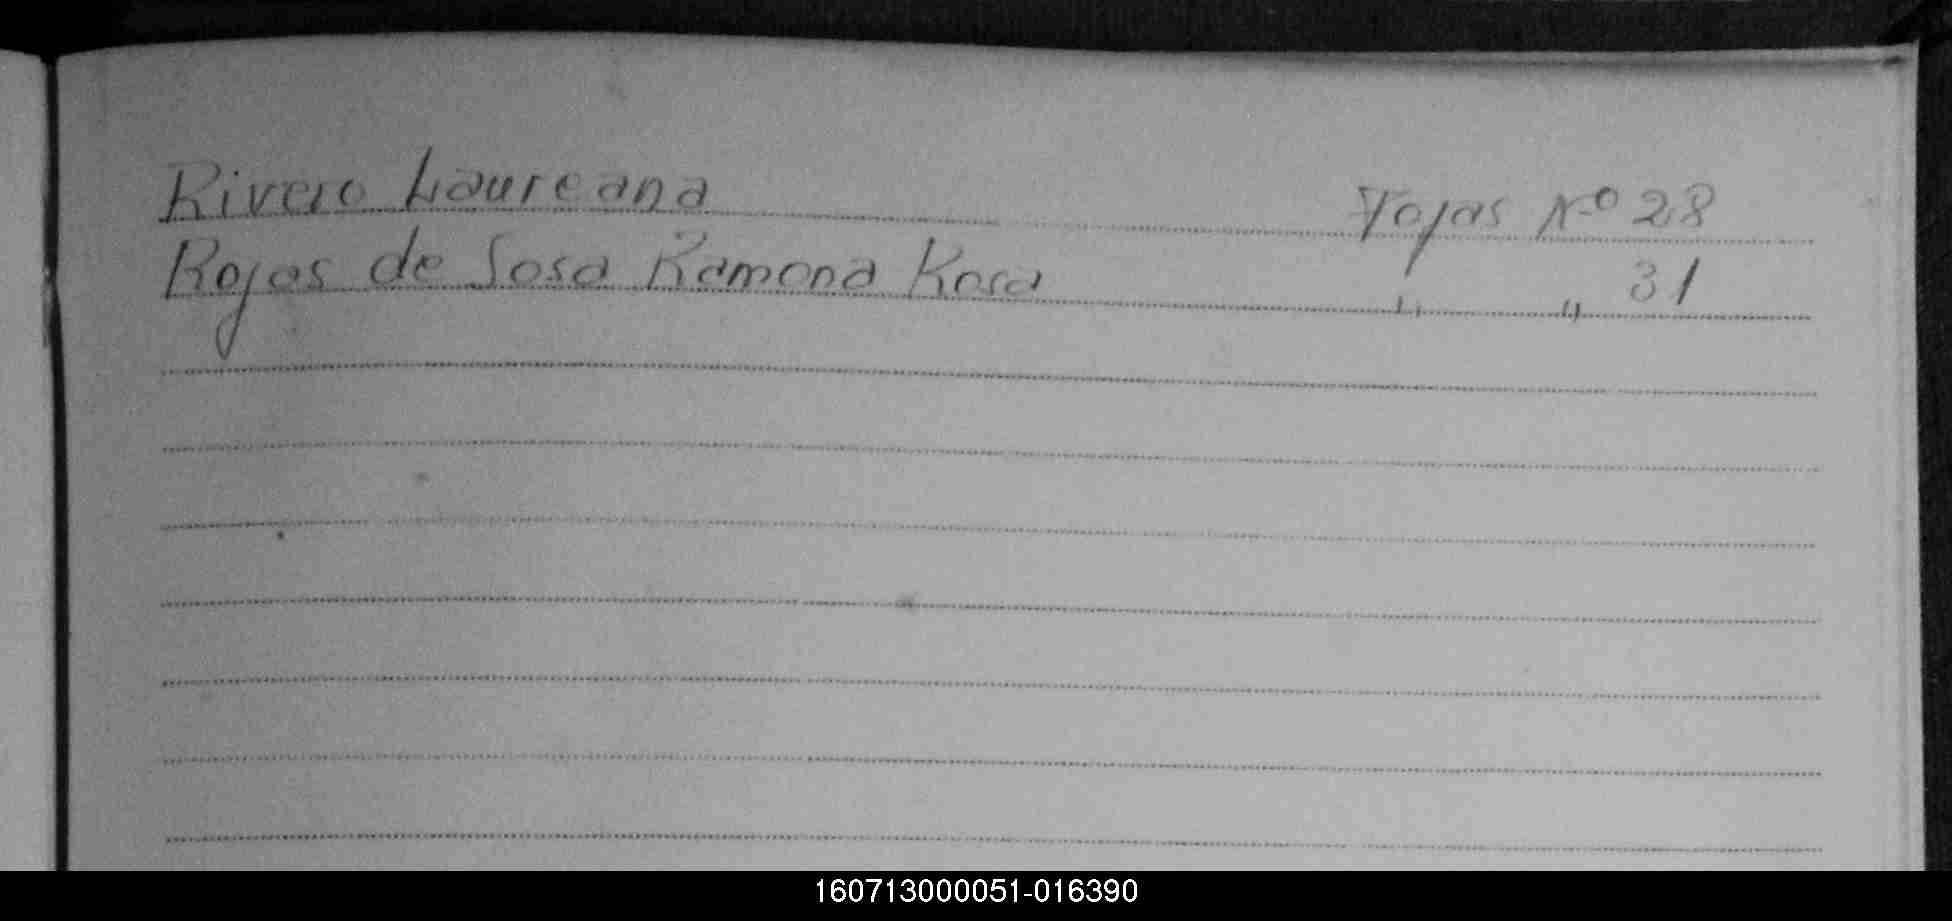 Rivero Laureana Fojas Nº 28
Rojas de Sosa Ramona Rosa " " 31
160713000051-016390